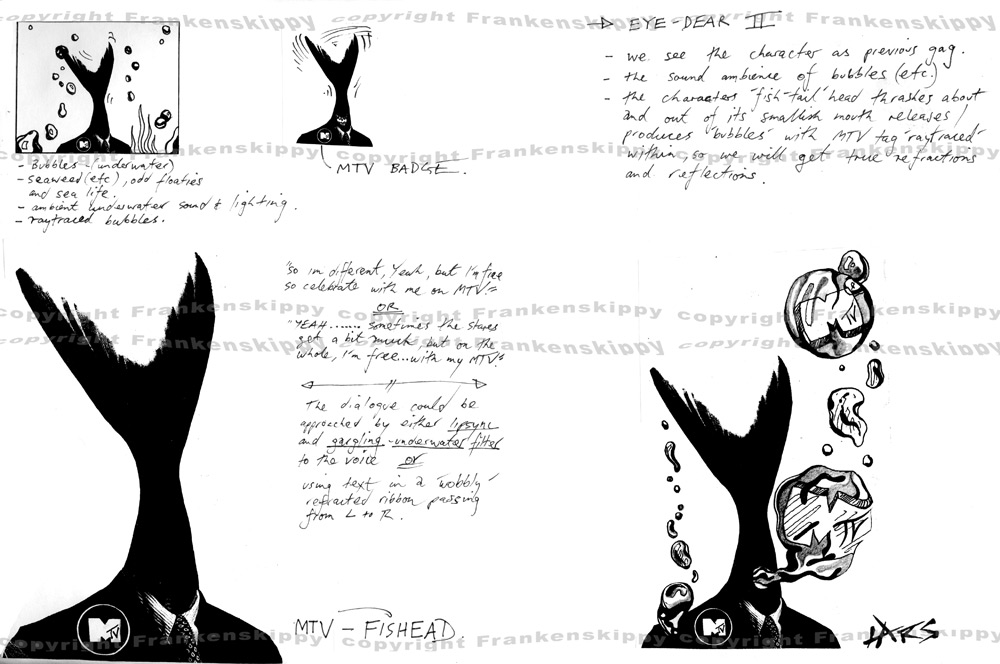 → EYE-DEAR II
- we see the character as previous gag.
- the sound ambience of bubbles (etc.)
- the characters 'fish-tail' head thrashes about
and out of its smallish mouth releases/
produces 'bubbles' with MTV tag 'raytraced'
within, so we will get true refractions
and reflections.
MTV BADGE.
- Bubbles - (underwater)
- seaweed (etc), odd floaties
and sea life.
- ambient underwater sound & lighting.
- raytraced bubbles.
"So im different, Yeah, but I'm free
so celebrate with me on MTV!"
OR
"YEAH....... sometimes the stares
get a bit much, but on the
whole, I'm free...with my MTV"
The dialogue could be
approached by either lipsync
and gargling-underwater filter
to the voice or
using text in a 'wobbly'
refracted ribbon passing
from L to R.
MTV - FISHEAD.
MTV
MTV
MTV
TV
LARS
copyright Frankenskippy copyright Frankenskippy copyright Frankenskippy
copyright Frankenskippy copyright Frankenskippy copyright Frankenskippy
copyright Frankenskippy copyright Frankenskippy copyright Frankenskippy
copyright Frankenskippy copyright Frankenskippy copyright Frankenskippy
copyright Frankenskippy copyright Frankenskippy copyright Frankenskippy